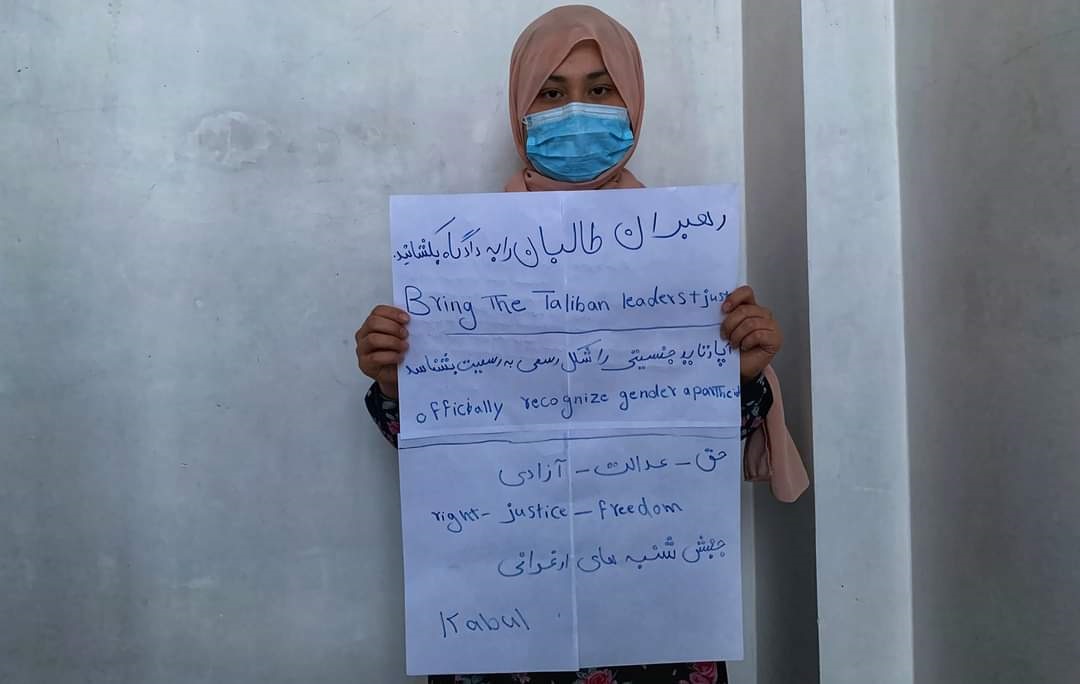 رهبران طالبان را به دادگاه بکشانید.
Bring The Taliban leaders t just
آپارتاید جنسیتی را شکل رسمی به رسمیت بشناسد
officially recognize gender aparthe
حق - عدالت - آزادی
right - justice - freedom
جنبش شنبه های ارغوانی
Kabul